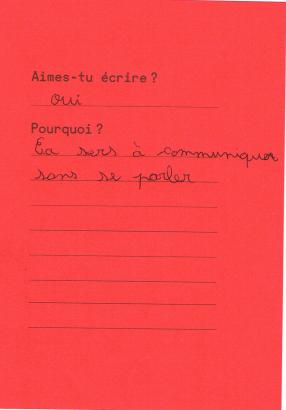 Aimes-tu écrire ?
oui
Pourquoi ?
Ca sers à communiquer
sans se parler